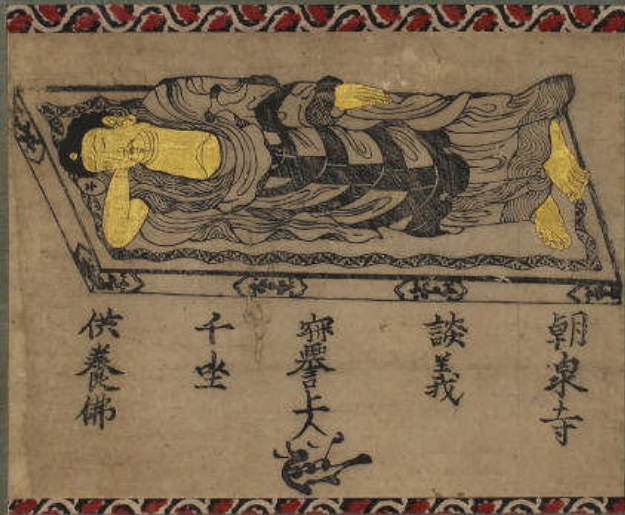 朝泉寺
談義
譽上人
千坐
供養佛